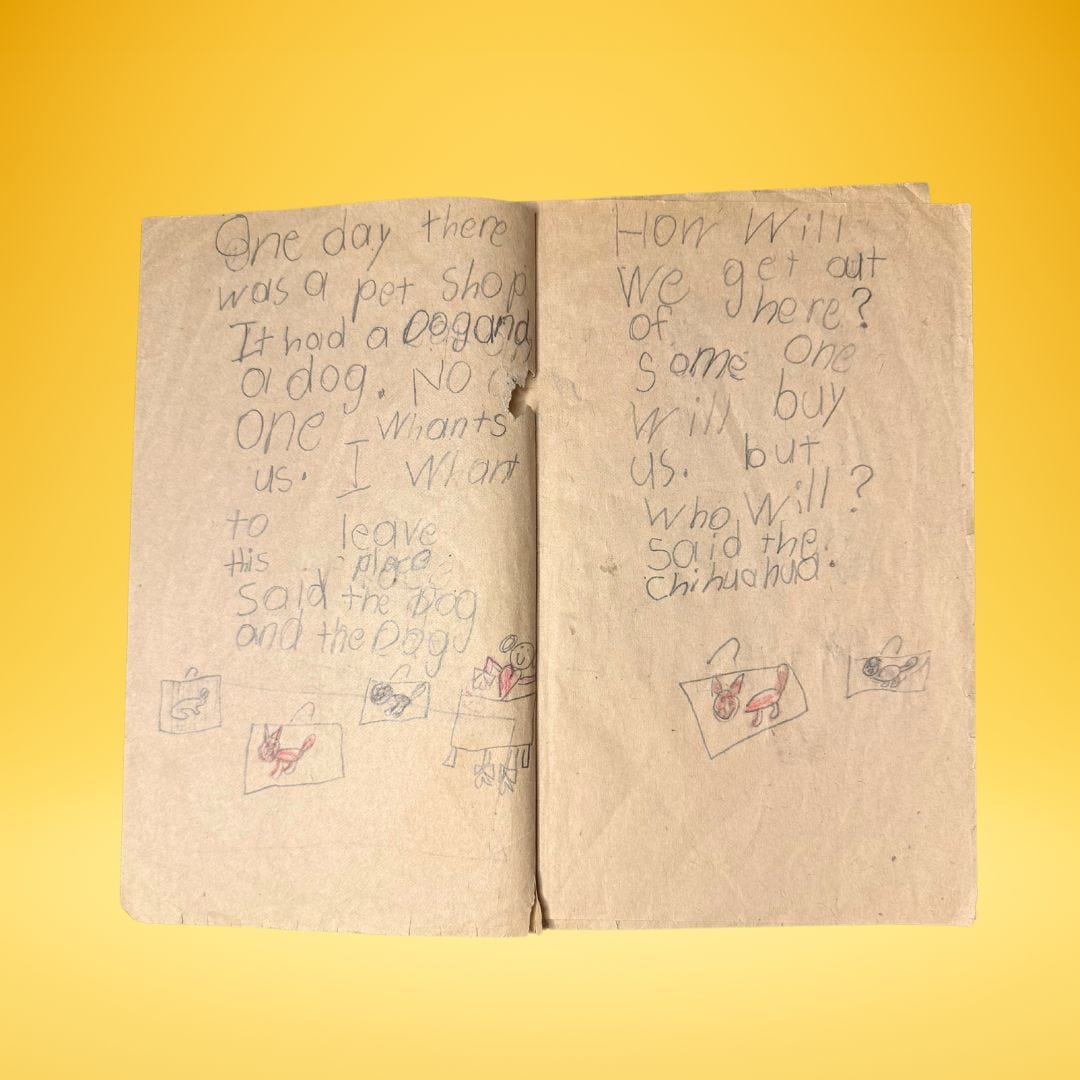 One day there
was a pet shop
It had a Dog and
a dog. No
one whants
us. I Whant
to leave
this place
said the Dog
and the Dog
How Will
We get out
of here?
some one
will buy
us. but
who will?
said the
chihuahua.